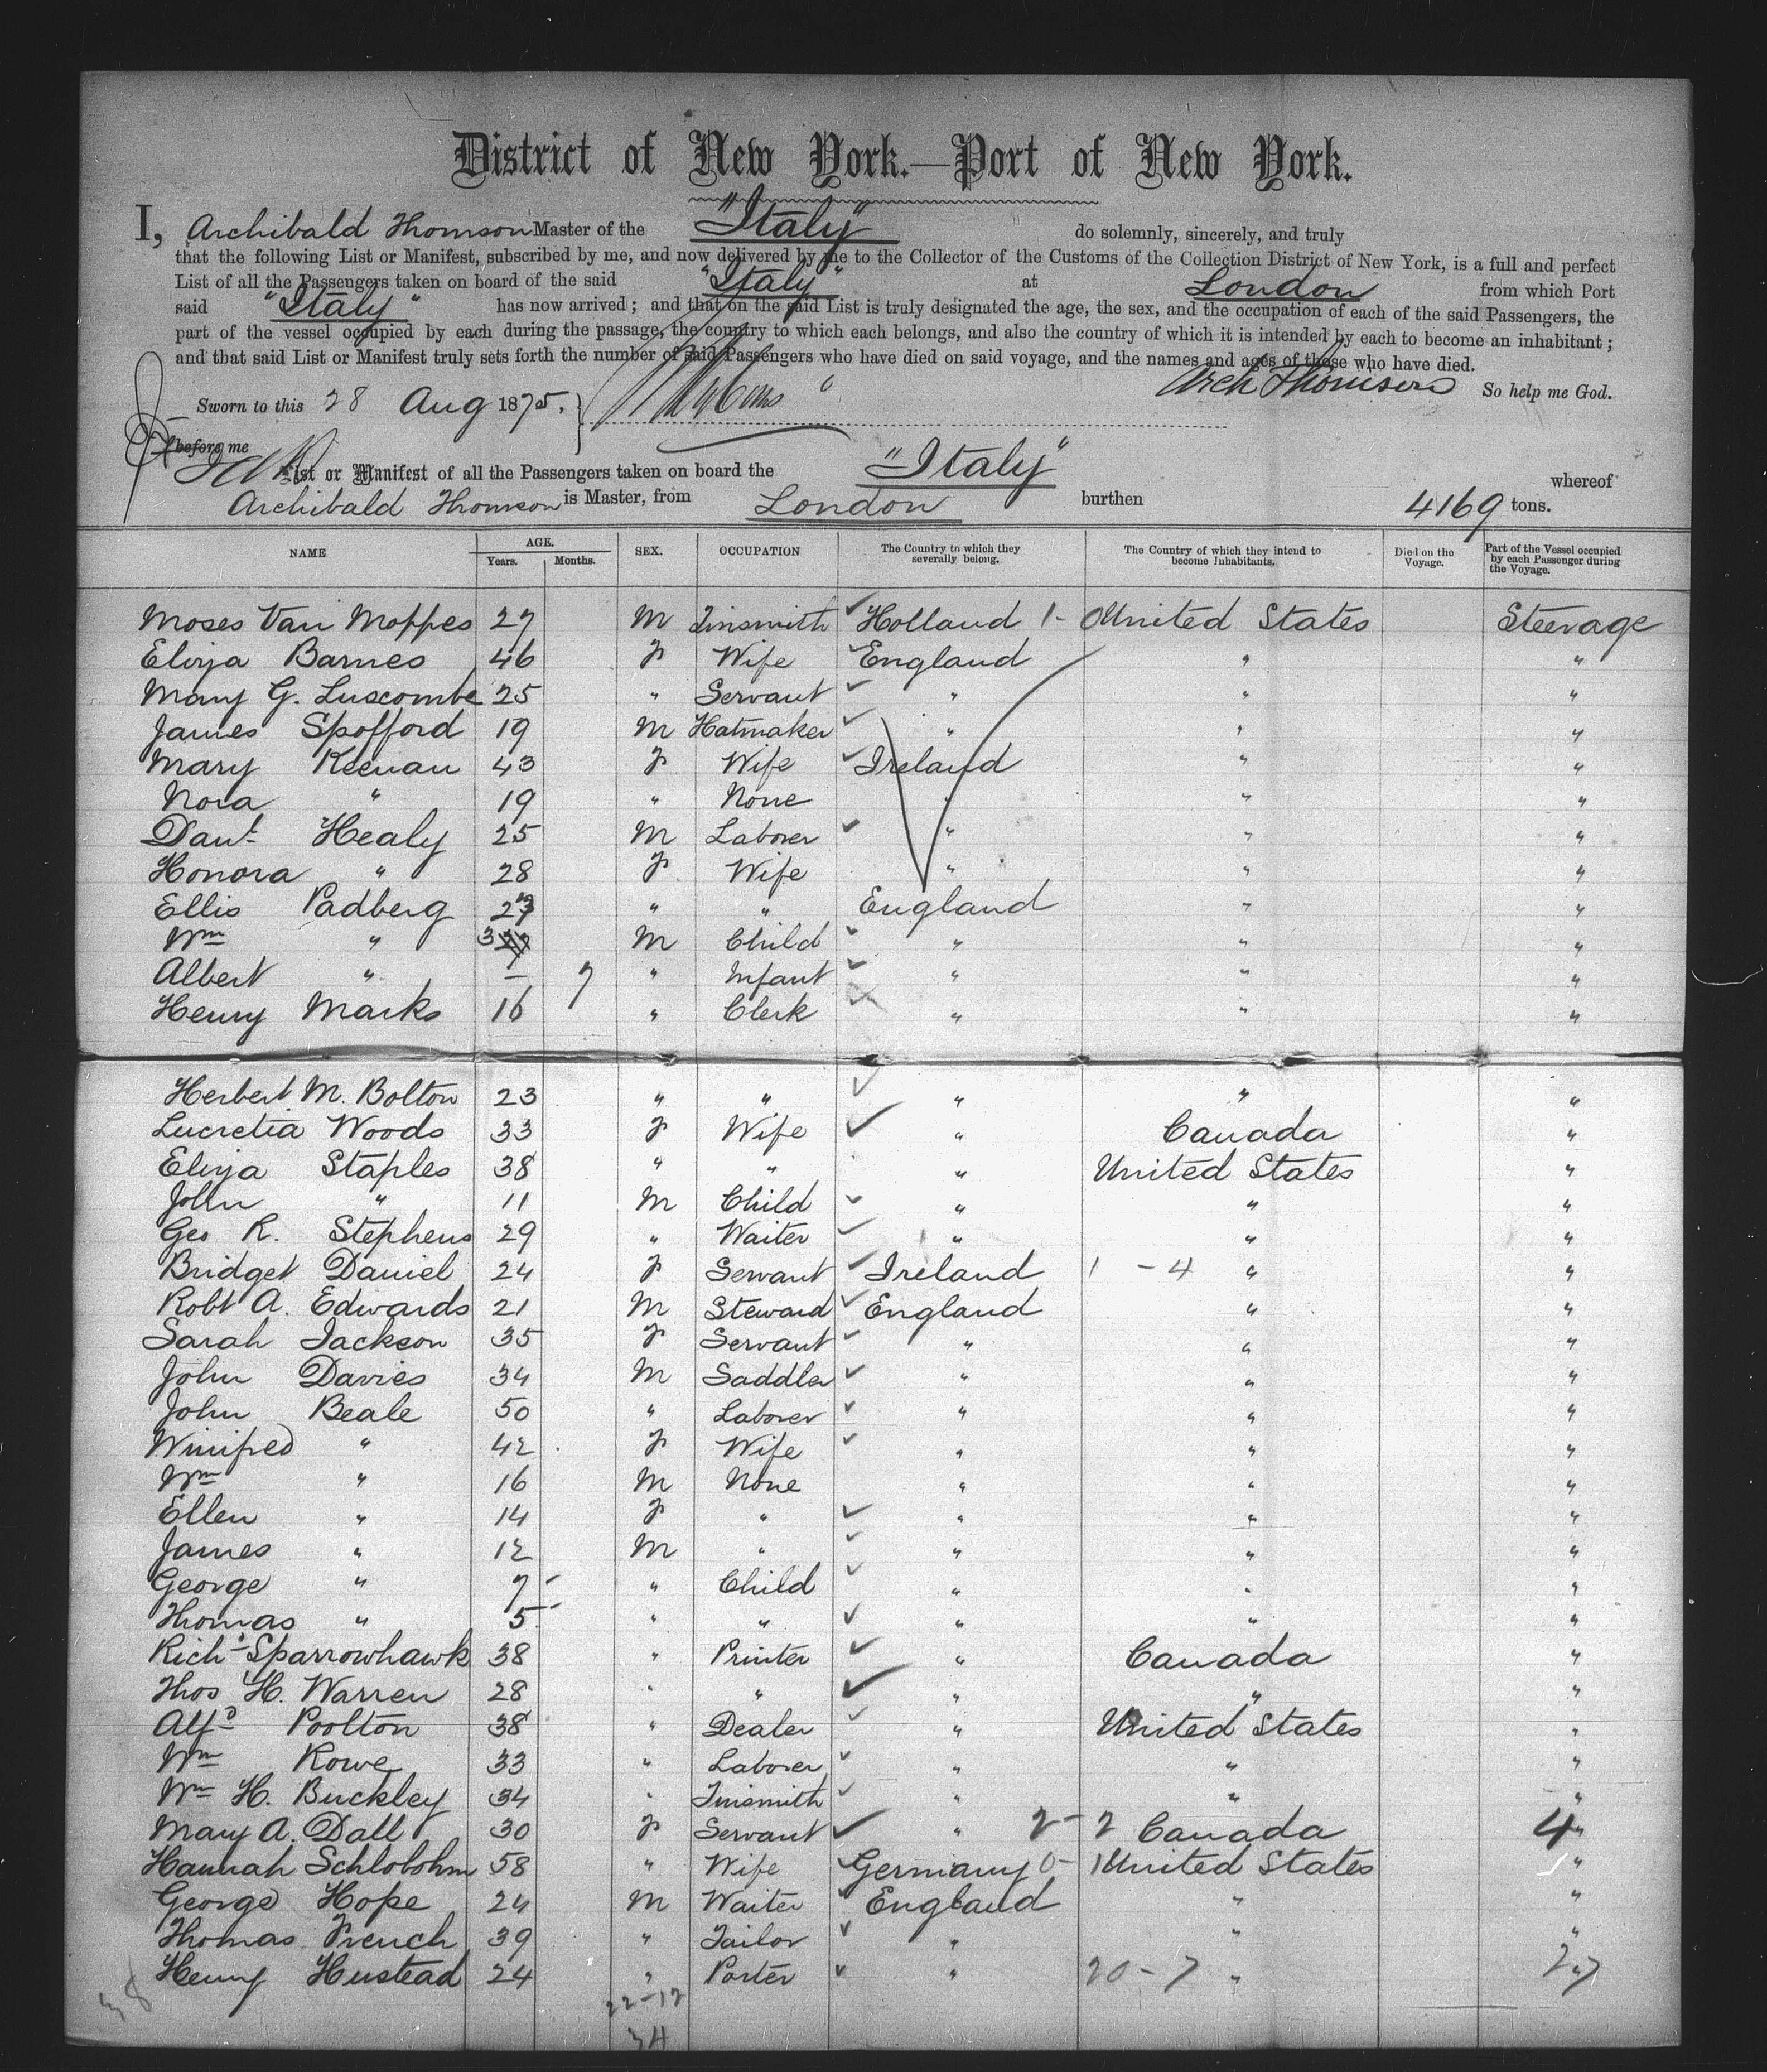 District of New York.—Port of New York.
I, Archibald Thomson Master of the "Italy" do solemnly, sincerely, and truly
that the following List or Manifest, subscribed by me, and now delivered by me to the Collector of the Customs of the Collection District of New York, is a full and perfect
List of all the Passengers taken on board of the said "Italy" at London from which Port
said "Italy" has now arrived; and that on the said List is truly designated the age, the sex, and the occupation of each of the said Passengers, the
part of the vessel occupied by each during the passage, the country to which each belongs, and also the country of which it is intended by each to become an inhabitant;
and that said List or Manifest truly sets forth the number of said Passengers who have died on said voyage, and the names and ages of those who have died.
Sworn to this 28 Aug 1875. Arch Thomson So help me God.
before me
List or Manifest of all the Passengers taken on board the "Italy" whereof
Archibald Thomson is Master, from London burthen 4169 tons.
NAME AGE. Years. Months. SEX. OCCUPATION The Country to which they severally belong. The Country of which they intend to become Inhabitants. Died on the Voyage. Part of the Vessel occupied by each Passenger during the Voyage.
Moses Van Moppes 27 M Tinsmith Holland 1-0 United States Steerage
Eliza Barnes 46 F Wife England " "
Mary G. Luscombe 25 " Servant " " "
James Spofford 19 M Hatmaker " " "
Mary Keenan 43 F Wife Ireland " "
Nora " 19 " None " " "
Danl Healy 25 M Laborer " " "
Honora " 28 F Wife " " "
Ellis Padberg 27 " " England " "
Wm " 3 M Child " " "
Albert " – 7 " Infant " " "
Henry Marks 16 " Clerk " " "
Herbert M. Bolton 23 " " " " "
Lucretia Woods 33 F Wife " Canada "
Eliza Staples 38 " " " United States "
John " 11 M Child " " "
Geo R. Stephens 29 " Waiter " " "
Bridget Daniel 24 F Servant Ireland 1 - 4 " "
Robt A. Edwards 21 M Steward England " "
Sarah Jackson 35 F Servant " " "
John Davies 34 M Saddler " " "
John Beale 50 " Laborer " " "
Winifred " 42 F Wife " " "
Wm " 16 M None " " "
Ellen " 14 F " " " "
James " 12 M " " " "
George " 7 " Child " " "
Thomas " 5 " " " " "
Richd Sparrowhawk 38 " Printer " Canada "
Thos H. Warren 28 " " " " "
Alfd Poolton 38 " Dealer " United States "
Wm Rowe 33 " Laborer " " "
Wm H. Buckley 34 " Tinsmith " " "
Mary A. Dall 30 F Servant " 2-2 Canada 4 "
Hannah Schlobohm 58 " Wife Germany 0-1 United States "
George Hope 24 M Waiter England " "
Thomas French 39 " Tailor " " "
Henry Hustead 24 " Porter " 20-7 " 27
38 22-12
34